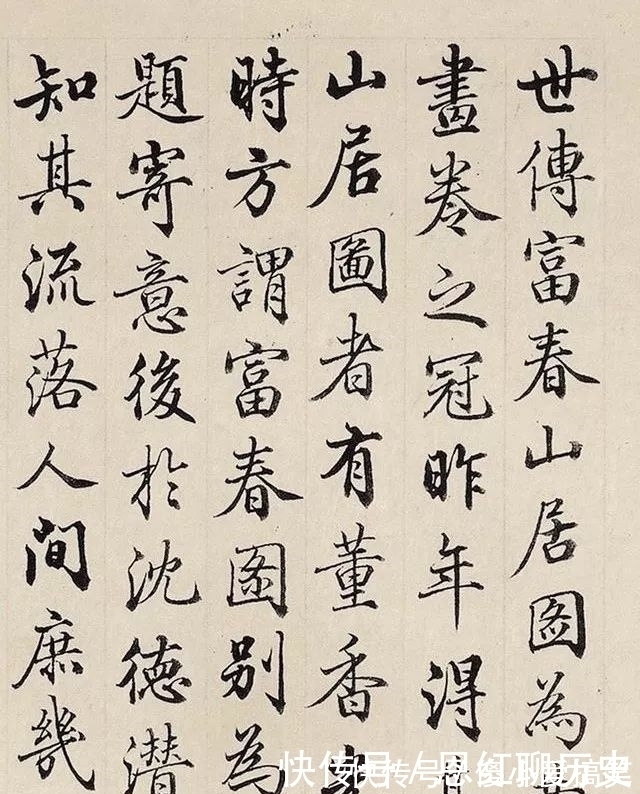 世傳富春山居圖為
畫卷之冠昨年得
山居圖者有董香
時方謂富春圖別為
題寄意後於沈德潛
知其流落人間庶幾
快传号/恩红聊历史